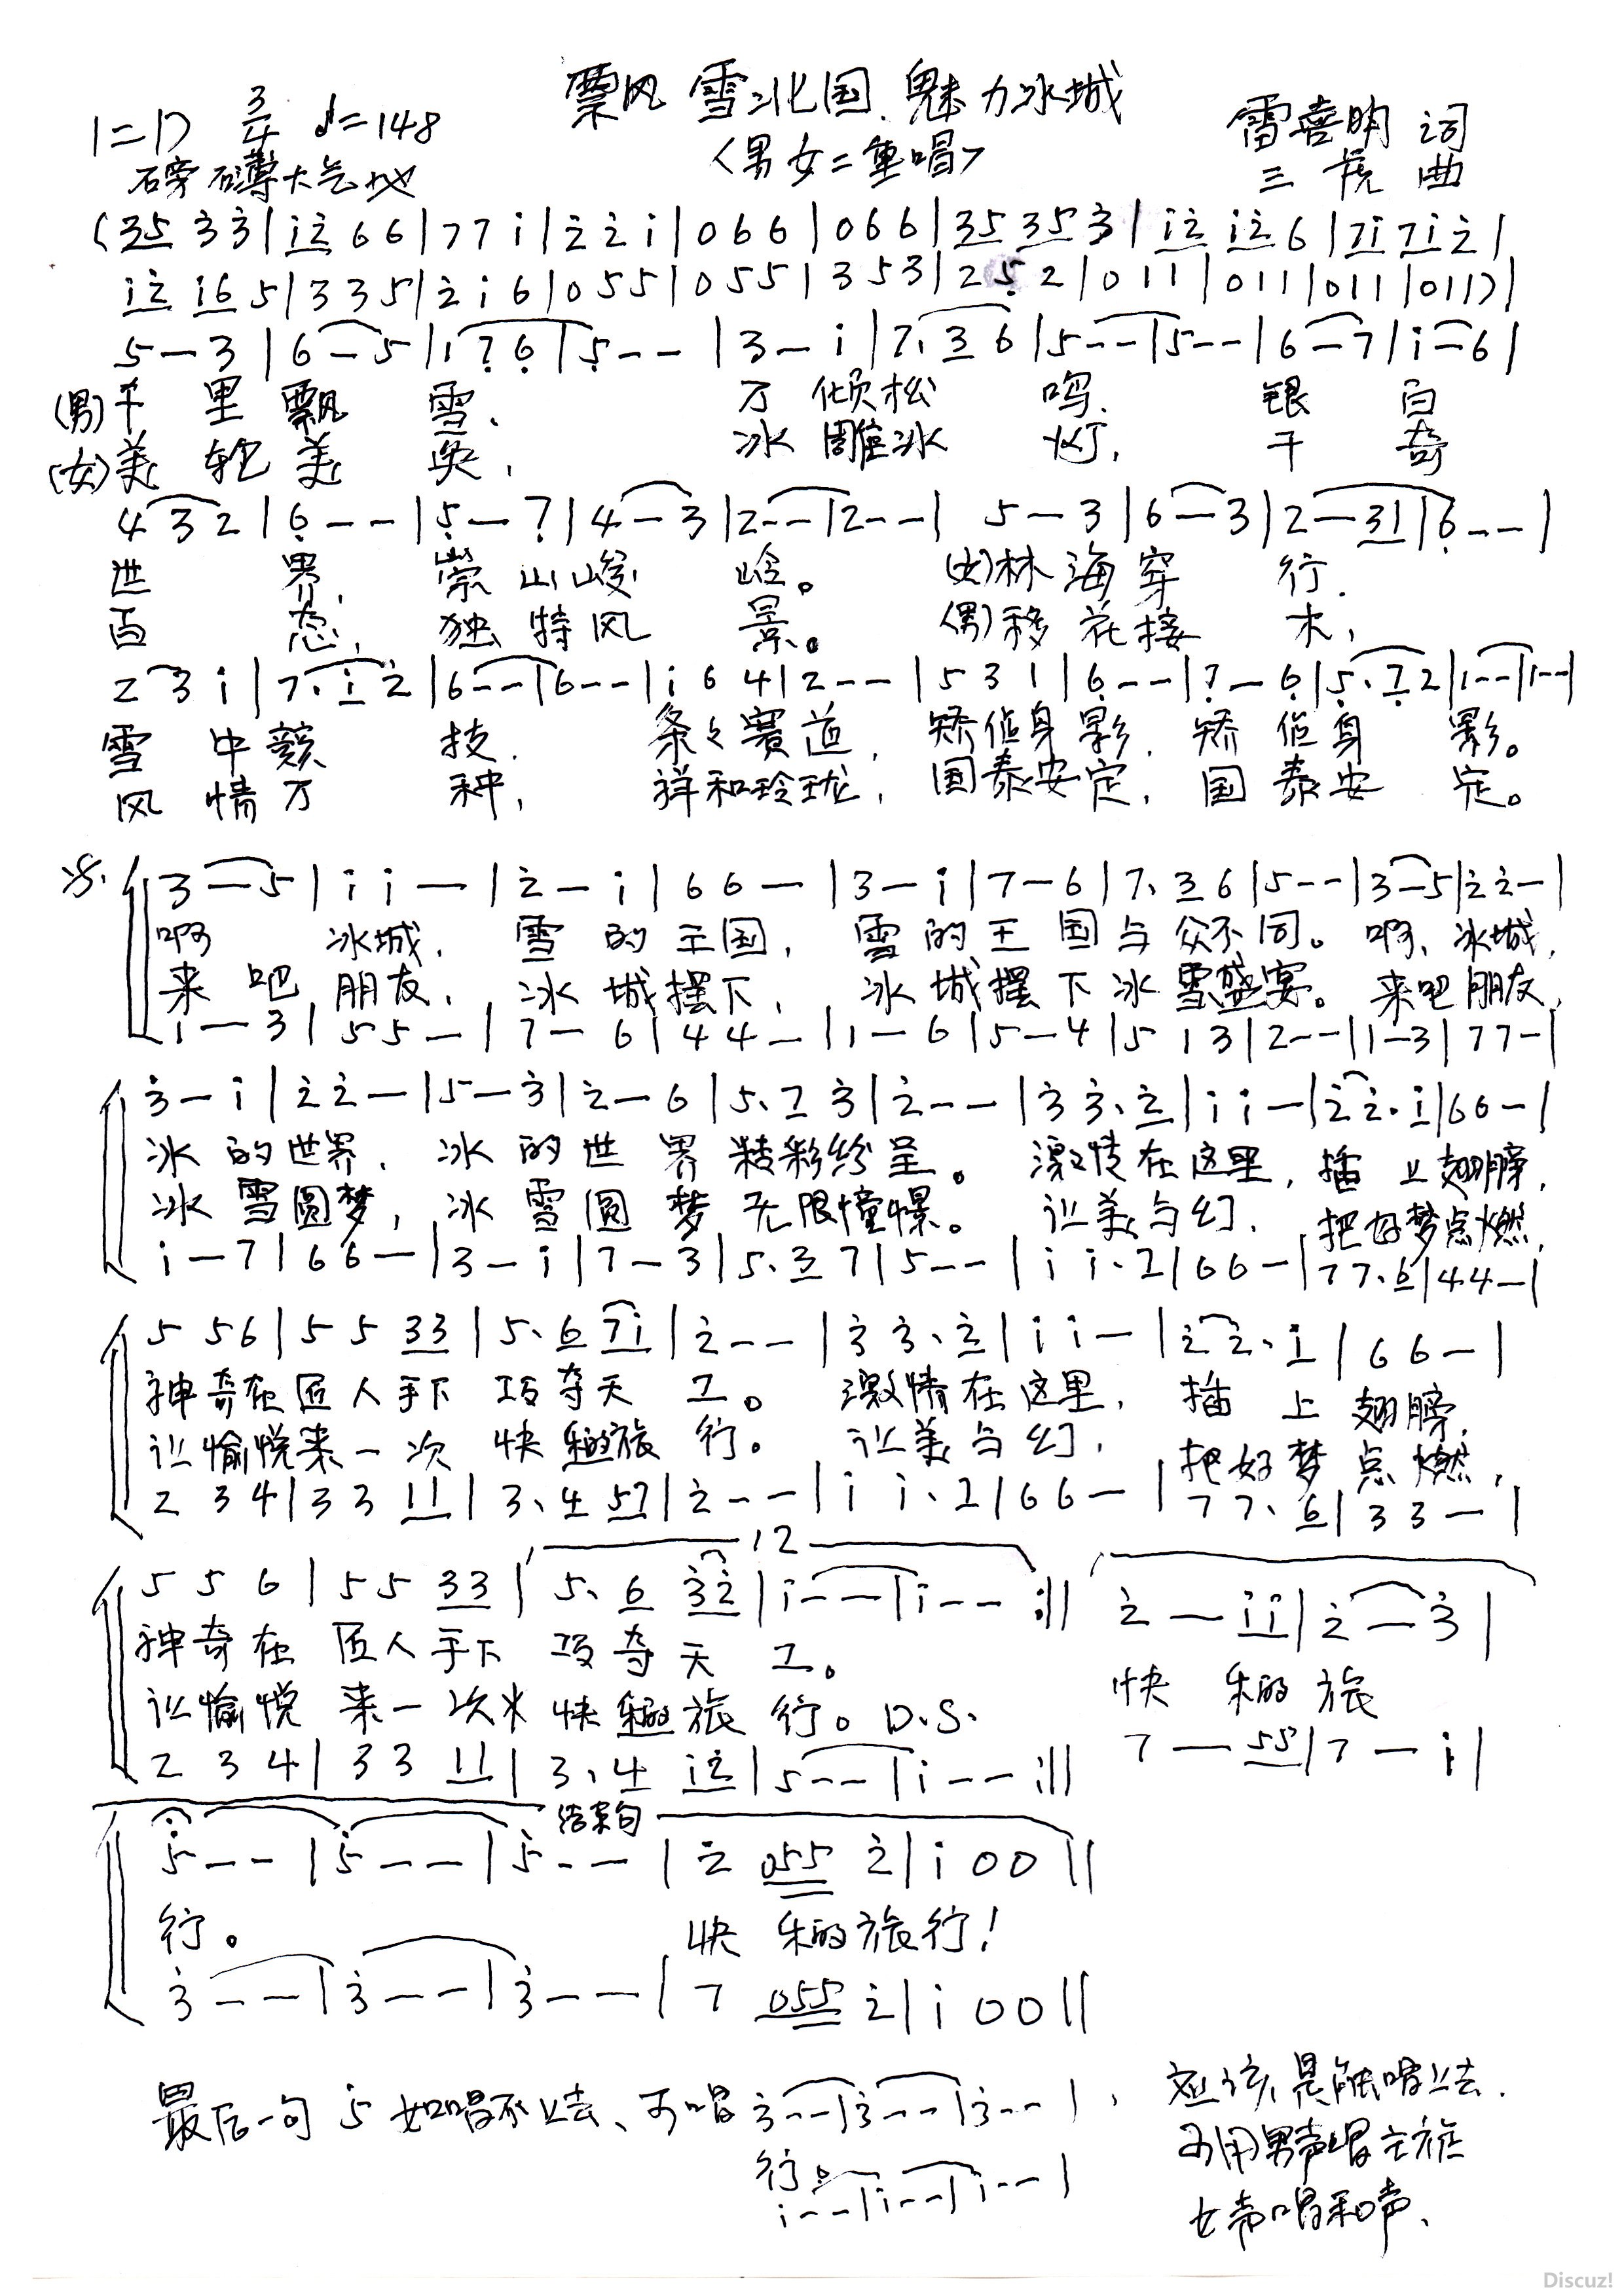 飘风雪北国、魅力冰城
1=D 3/4 ♩=148
〈男女二重唱〉
雷喜明 词
磅礴大气地
三虎 曲
(35 3 3̇|i̇2̇ 6 6|7 7 i̇|2̇ 2̇ i̇|0 6 6|0 6 6|35 35 3|i̇2̇ i̇2̇ 6|7i̇ 7i̇ 2̇|
i̇2̇ i̇6 5|3 3 5|2̇ i̇ 6|0 5 5|0 5 5|3 5 3|2 5̣ 2|0 1 1|0 1 1|0 1 1|0 1 1)|
5 — 3|6 — 5|1 7̣ 6̣|5̣ - -|3 — i̇|7. 3 6|5 - -|5 - -|6 — 7|i̇ — 6|
(男)千 里 飘 雪、 万 倾 松 鸣、 银 白
(女)美 轮 美 奂, 冰 雕 冰 灯, 千 奇
4 3 2|6̣ - -|5̣ — 7̣|4 — 3|2 - -|2 - -| 5 — 3|6 — 3|2 — 31|6̣ - -|
世 界、 崇 山 峻 岭。 (女)林 海 穿 行、
百 态, 独 特 风 景。 (男)移 花 接 木,
2 3 i̇|7. i̇ 2̇|6 - -|6 - -|i̇ 6 4|2 - -|5 3 1|6̣ - -|7̣ — 6̣|5̣. 7̣ 2|1 - -|1 - -|
雪 中 競 技、 条々赛道, 矫侦身影、矫 侦 身 影。
风 情 万 种, 祥和玲珑, 国泰安定, 国 泰 安 定。
𝄋 3 — 5|i̇ i̇ —|2̇ — i̇|6 6 —|3 — i̇|7 — 6|7. 3 6|5 - -|3 — 5|2̇ 2̇ —|
啊 冰城、 雪 的 王国, 雪 的 王 国 与 众不 同。 啊、冰城,
来 吧 朋友, 冰 城 摆下, 冰 城 摆 下 冰 雪盛宴。 来吧朋友,
1 — 3|5 5 —|7 — 6|4 4 —|1 — 6|5 — 4|5 1 3|2 - -|1 — 3|7 7 —|
3̇ — i̇|2̇ 2̇ —|5 — 3̇|2̇ — 6|5. 7 3|2̇ - -|3̇ 3̇. 2̇|i̇ i̇ —|2̇ 2̇. i̇|6 6 —|
冰 的 世界、 冰 的 世 界 精彩纷呈。 激情在这里, 插 上翅膀,
冰 雪圆梦, 冰 雪 圆 梦 无限憧憬。 让美与幻, 把好梦点燃,
i̇ — 7|6 6 —|3 — i̇|7 — 3|5. 3 7|5 - -|i̇ i̇. 7|6 6 —|7 7. 6|4 4 —|
5 5 6|5 5 33|5. 6 7i̇|2̇ - -|3̇ 3̇. 2̇|i̇ i̇ —|2̇ 2̇. i̇|6 6 —|
神奇在匠人手下 巧夺天 工。 激情在这里, 插 上 翅膀,
让愉悦来一次 快乐的旅 行。 让美与幻, 把好梦 点燃,
2 3 4|3 3 11|3. 4 57|2̇ - -|i̇ i̇. 7|6 6 —|7 7. 6|3 3 —|
12
5 5 6|5 5 33|5. 6 3̇2̇|i̇ - -|i̇ - - :‖ 2̇ — i̇i̇|2̇ — 3̇|
神奇在 匠人手下 巧夺天 工。
让愉悦 来一次 快乐的旅 行。D.S. 快 乐的 旅
2 3 4|3 3 11|3. 4 i̇2̇|5 - -|i̇ - - :‖ 7 — 55|7 — i̇|
结束句
5̇ - -|5̇ - -|5̇ - -|2̇ 055 2̇|i̇ 0 0‖
行。 快 乐的旅行!
3̇ - -|3̇ - -|3̇ - -|7 055 2̇|i̇ 0 0‖
最后一句 5̇ 如唱不上去、可唱 3̇ - -|3̇ - -|3̇ - -|, 应该是能唱上去.
行。
i̇ - -|i̇ - -|i̇ - -|
可用男声唱主旋
女声唱和声、
Discuz!